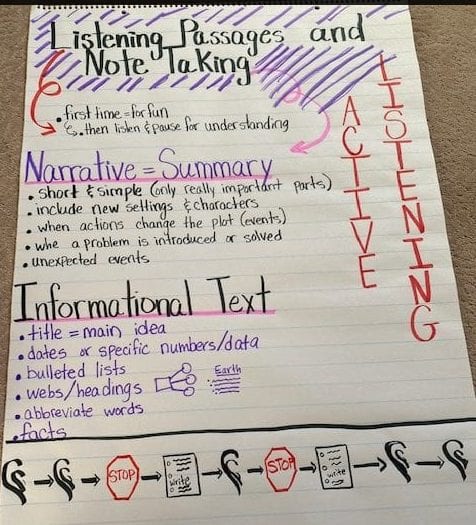 Listening Passages and
Note Taking
• first time = for fun
• then listen & pause for understanding
ACTIVE
LISTENING
Narrative = Summary
• short & simple (only really important parts)
• include new settings & characters
• when actions change the plot (events)
• whe a problem is introduced or solved
• unexpected events
Informational Text
• title = main idea
• dates or specific numbers/data
• bulleted lists
• webs/headings
Earth
• abbreviate words
• facts
STOP
write
STOP
write